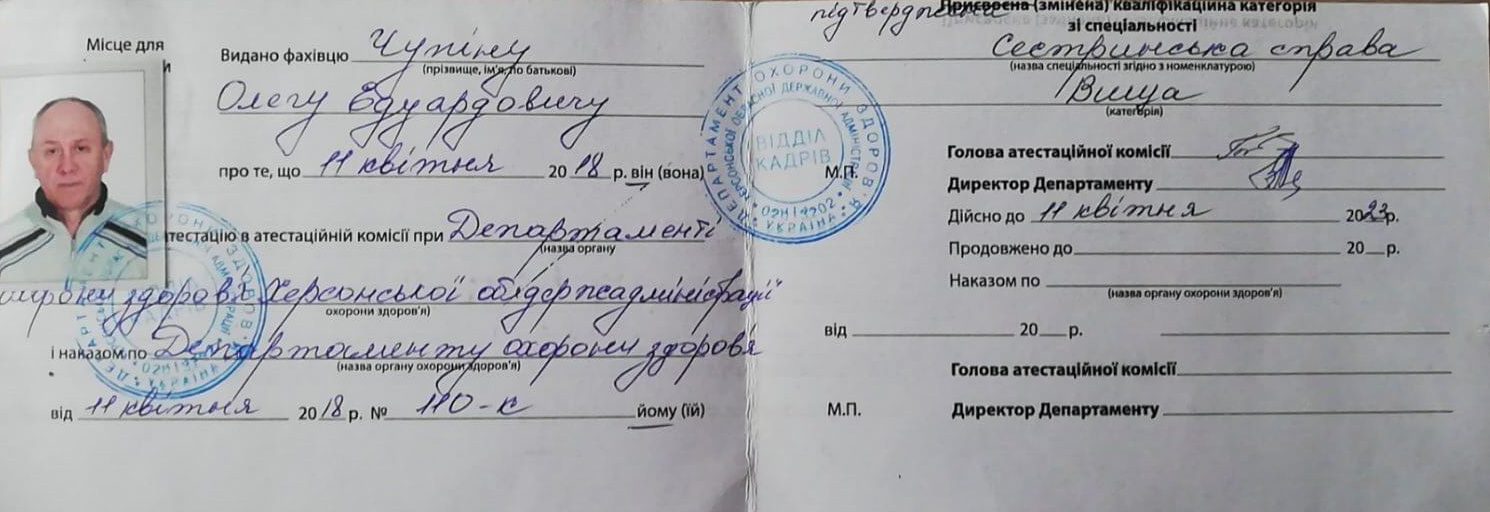 Місце для
и
Видано фахівцю Чупіну
(прізвище, ім'я, по батькові)
Олегу Едуардовичу
про те, що 11 квітня 2018 р. він (вона)
тестацію в атестаційній комісії при Департаменті
(назва органу
охорони здоров'я Херсонської облдержадміністрації
охорони здоров'я)
і наказом по Департаменту охорони здоров'я
(назва органу охорони здоров'я)
від 11 квітня 2018 р. № 110-к йому (їй)
підтверджена
Присвоєна (змінена) кваліфікаційна категорія
зі спеціальності
Сестринська справа
(назва спеціальності згідно з номенклатурою)
Вища
(категорія)
Голова атестаційної комісії
М.П.
Директор Департаменту
Дійсно до 11 квітня 2023р.
Продовжено до 20 р.
Наказом по
(назва органу охорони здоров'я)
від 20 р.
Голова атестаційної комісії
М.П. Директор Департаменту
ДЕПАРТАМЕНТ ОХОРОНИ ЗДОРОВ'Я
ХЕРСОНСЬКОЇ ОБЛАСНОЇ ДЕРЖАВНОЇ АДМІНІСТРАЦІЇ
ВІДДІЛ
КАДРІВ
УКРАЇНА